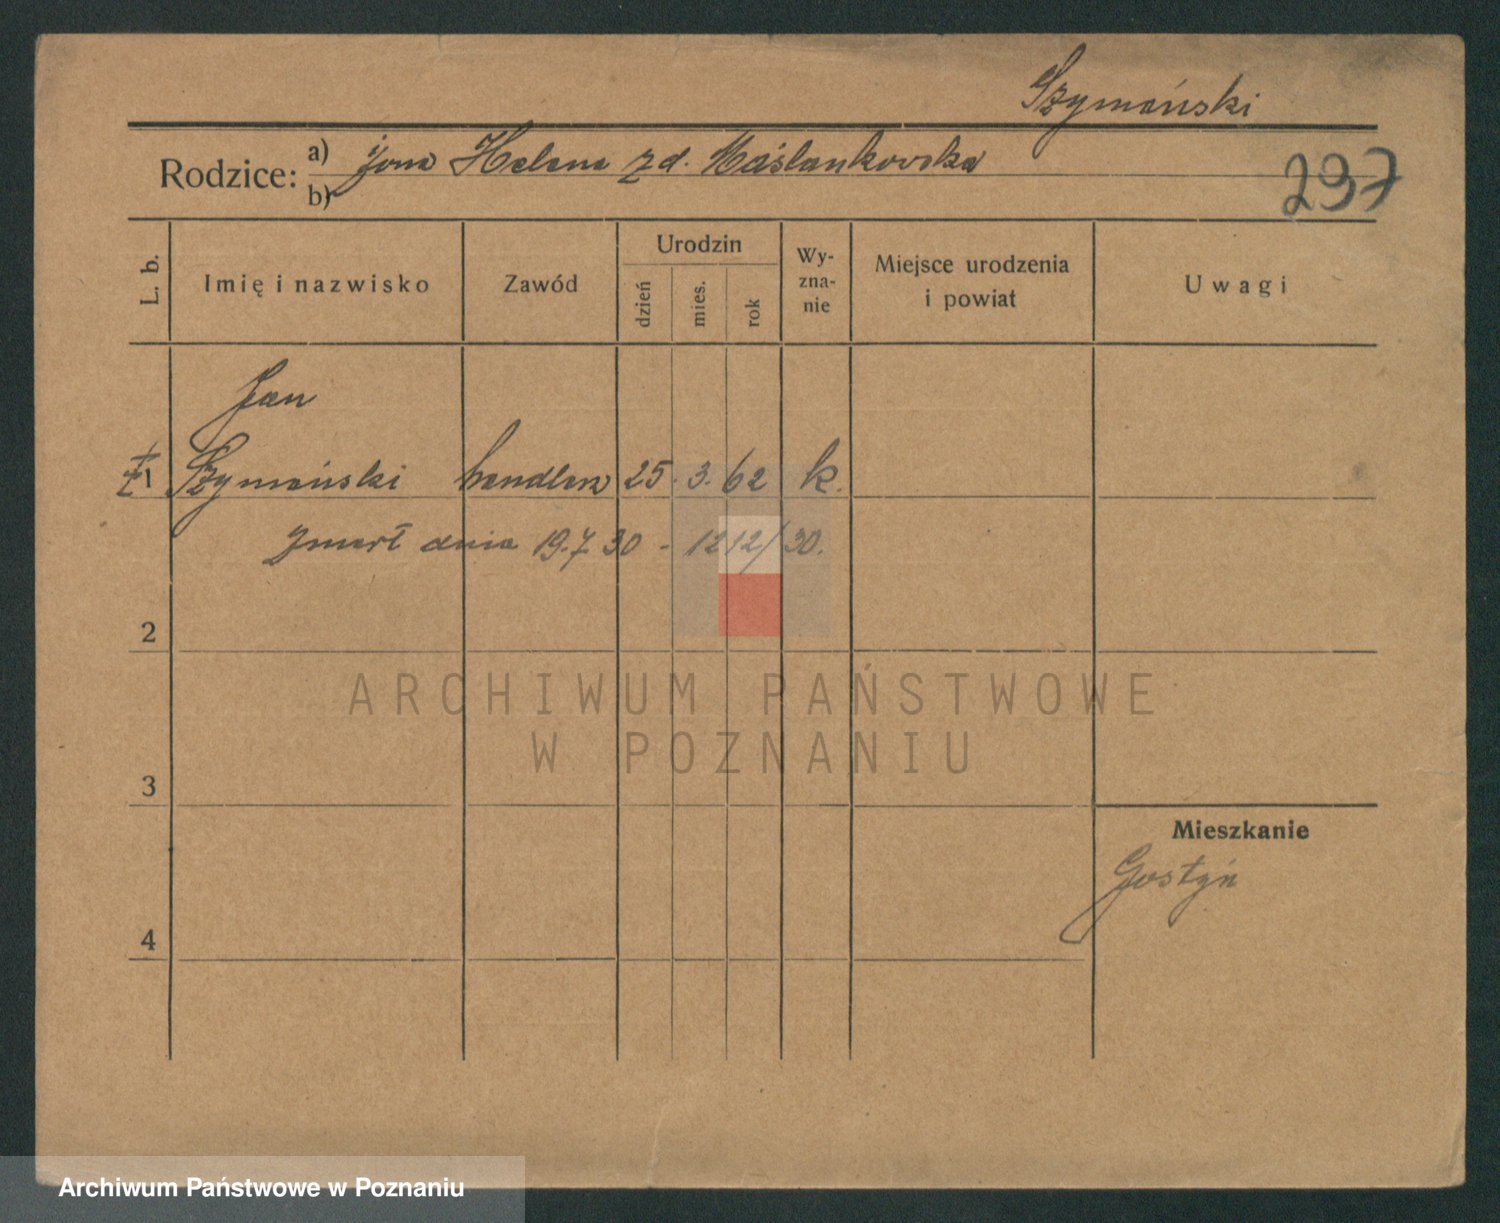 Szymański
Rodzice: a) żona Helena zd. Maślankowska
b)
297
L. b.
Imię i nazwisko
Zawód
Urodzin
dzień
mies.
rok
Wy-
zna-
nie
Miejsce urodzenia
i powiat
Uwagi
Jan
1 Szymański handlarz 25. 3. 62 k.
zmarł dnia 19.7.30 - 1212/30.
2
ARCHIWUM PAŃSTWOWE
W POZNANIU
3
Mieszkanie
Gostyń
4
Archiwum Państwowe w Poznaniu